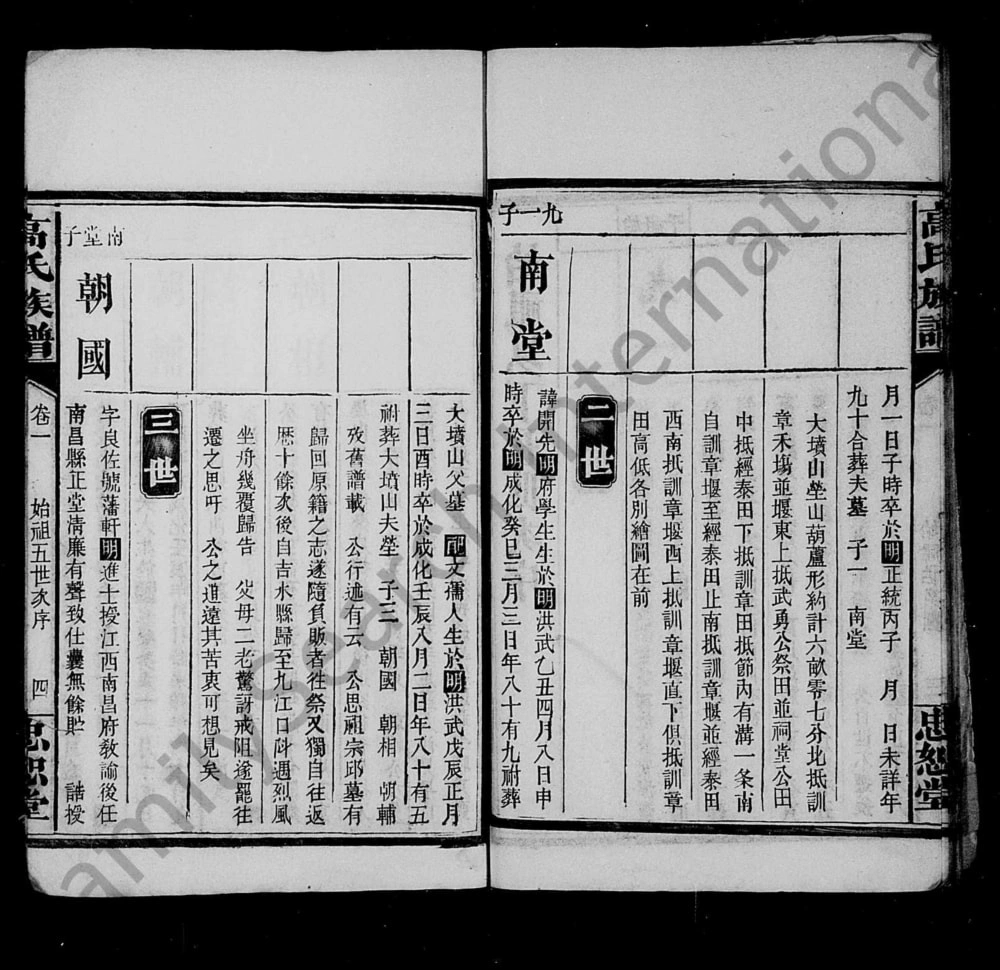 高氏族譜
忠恕堂
月一日子時卒於明正統丙子　月　日未詳年
九十合葬夫墓　子一　南堂
大墳山塋山葫蘆形約計六畝零七分地抵訓
章禾塲並堰東上抵武勇公祭田並祠堂公田
中抵經泰田下抵訓章田抵節內有溝一条南
自訓章堰至經泰田止南抵訓章堰並經泰田
西南抵訓章堰西上抵訓章堰直下俱抵訓章
田高低各別繪圖在前
二世
九一子
南堂
諱開先明府學生生於明洪武乙丑四月八日申
時卒於明成化癸巳三月三日年八十有九祔葬
大墳山父墓　配文孺人生於明洪武戊辰正月
三日酉時卒於成化壬辰八月二日年八十有五
祔葬大墳山夫塋　子三　朝國　朝相　朝輔
攷舊譜載　公行述有云　公思祖宗邱墓有
歸回原籍之志遂隨負販者徃祭又獨自往返
厯十餘次後自吉水縣歸至九江口𣁽遇烈風
坐舟幾覆歸告　父母二老驚訝戒阻遂罷往
遷之思吁　公之道遠其苦衷可想見矣
三世
南堂子
朝國
字良佐號藩軒明進士授江西南昌府敎諭後任
南昌縣正堂清廉有聲致仕囊無餘貯　誥授
高氏族譜
卷一　始祖五世次序　四
忠恕堂
FamilySearch International